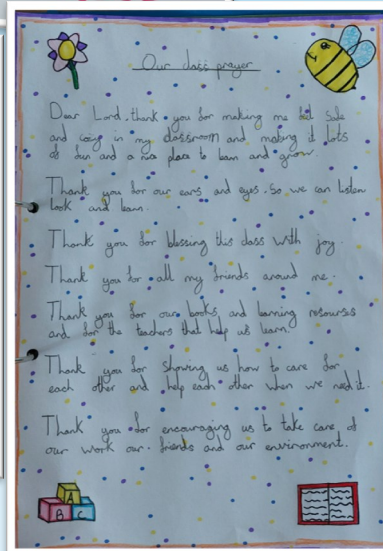 Our class prayer
Dear Lord, thank you for making me feel safe
and cosy in my classroom and making it lots
of fun and a nice place to learn and grow.
Thank you for our ears and eyes. So we can listen
look and learn.
Thank you for blessing this class with joy.
Thank you for all my friends around me.
Thank you for our books and learning resourses
and for the teachers that help us learn.
Thank you for showing us how to care for
each other and help each other when we need it.
Thank you for encouraging us to take care of
our work our friends and our environment.
A
B C